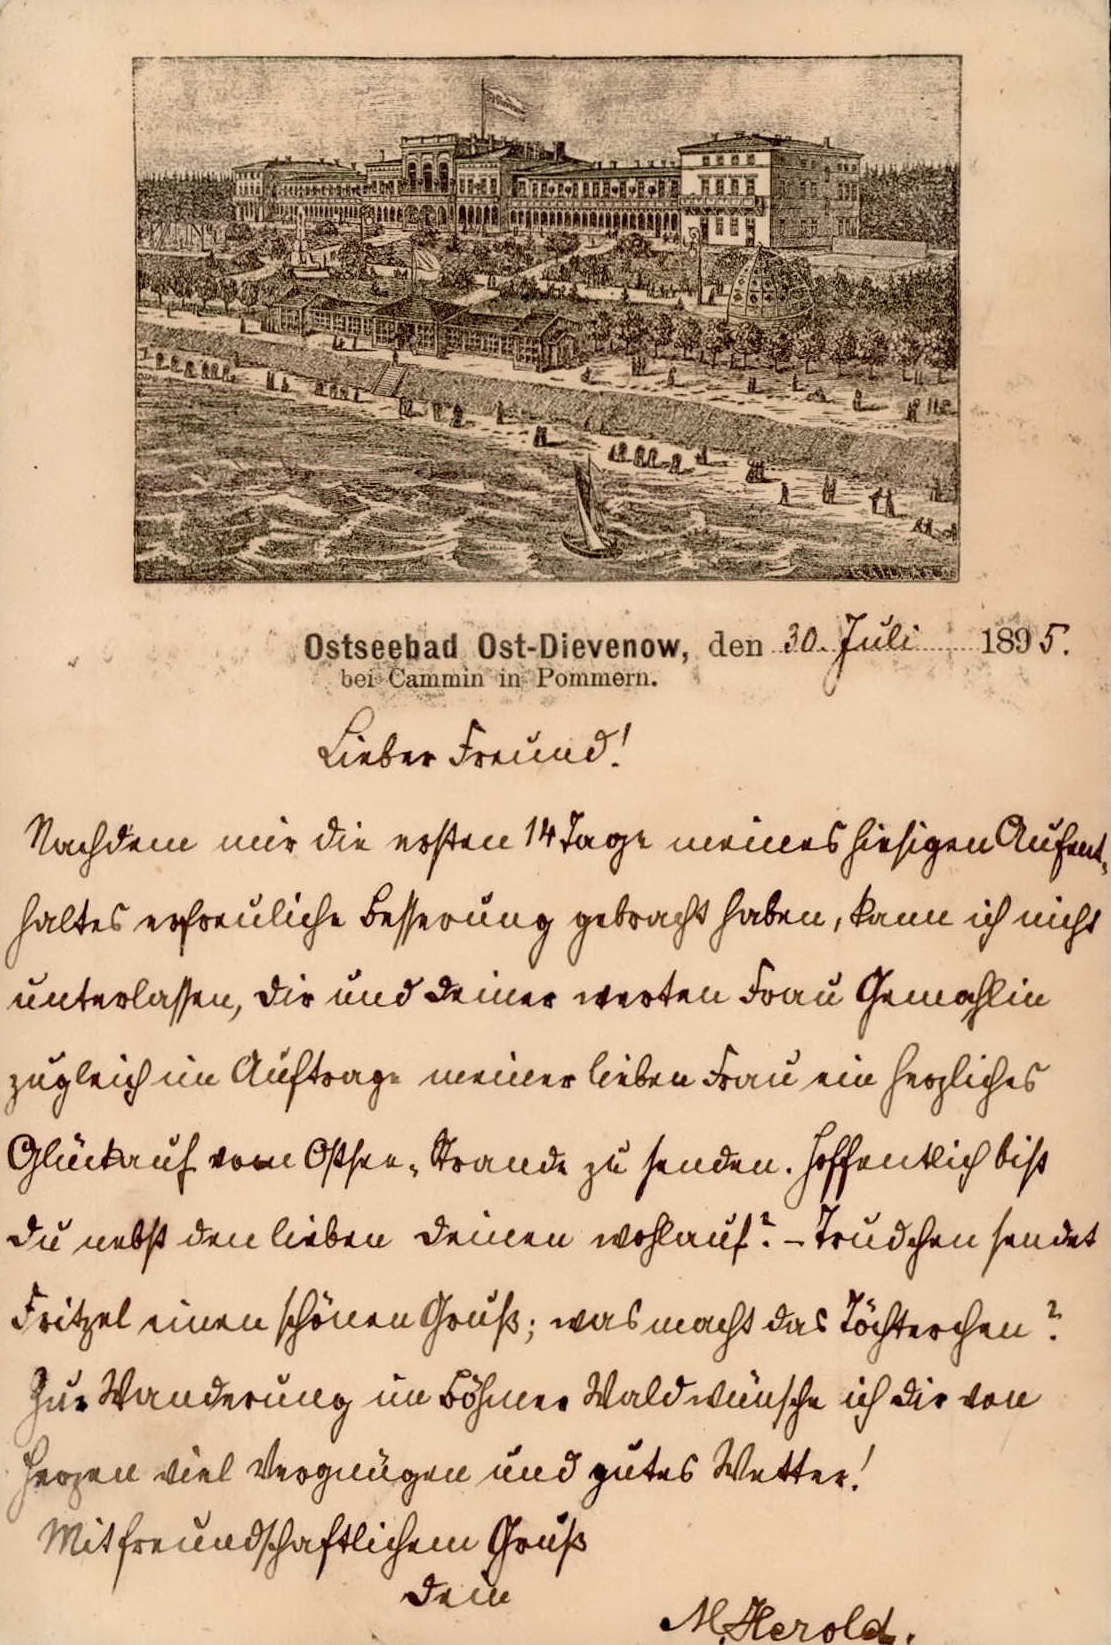 Ostseebad Ost-Dievenow, den 30. Juli 1895.
bei Cammin in Pommern.
Lieber Freund!
Nachdem mir die ersten 14 Tage meines hiesigen Aufent-
haltes erfreuliche Besserung gebracht haben, kann ich nicht
unterlassen, Dir und Deiner werten Frau Gemahlin
zugleich im Auftrage meiner lieben Frau ein herzliches
Glückauf vom Ostsee-Strande zu senden. Hoffentlich bist
Du nebst den lieben Deinen wohlauf? – Trudchen sendet
Fritzel einen schönen Gruß; was macht das Töchterchen?
Zur Wanderung im Böhmer Wald wünsche ich Dir von
Herzen viel Vergnügen und gutes Wetter!
Mit freundschaftlichem Gruß
Dein
M. Herold.